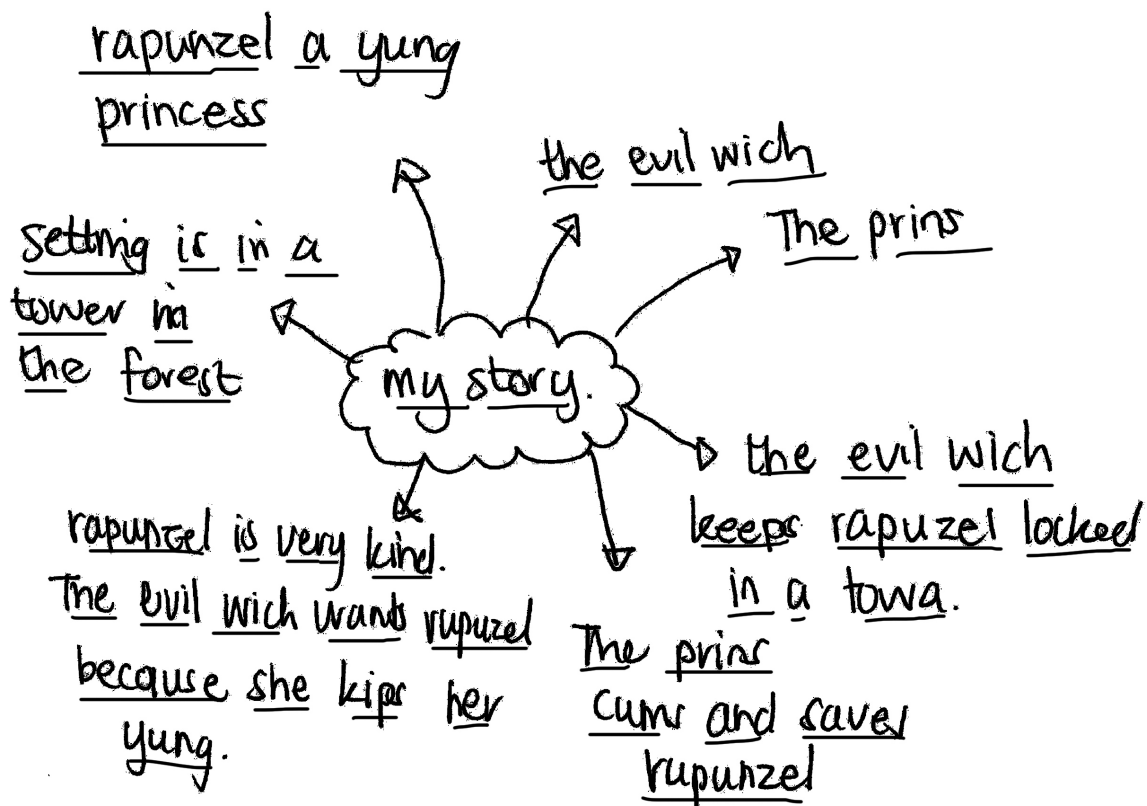 rapunzel a yung
princess
the evil wich
The prins
setting is in a
tower in
the forest
my story.
the evil wich
keeps rapuzel locked
in a towa.
rapunzel is very kind.
The evil wich wants rupuzel
because she kips her
yung.
The prins
cums and saves
rupunzel